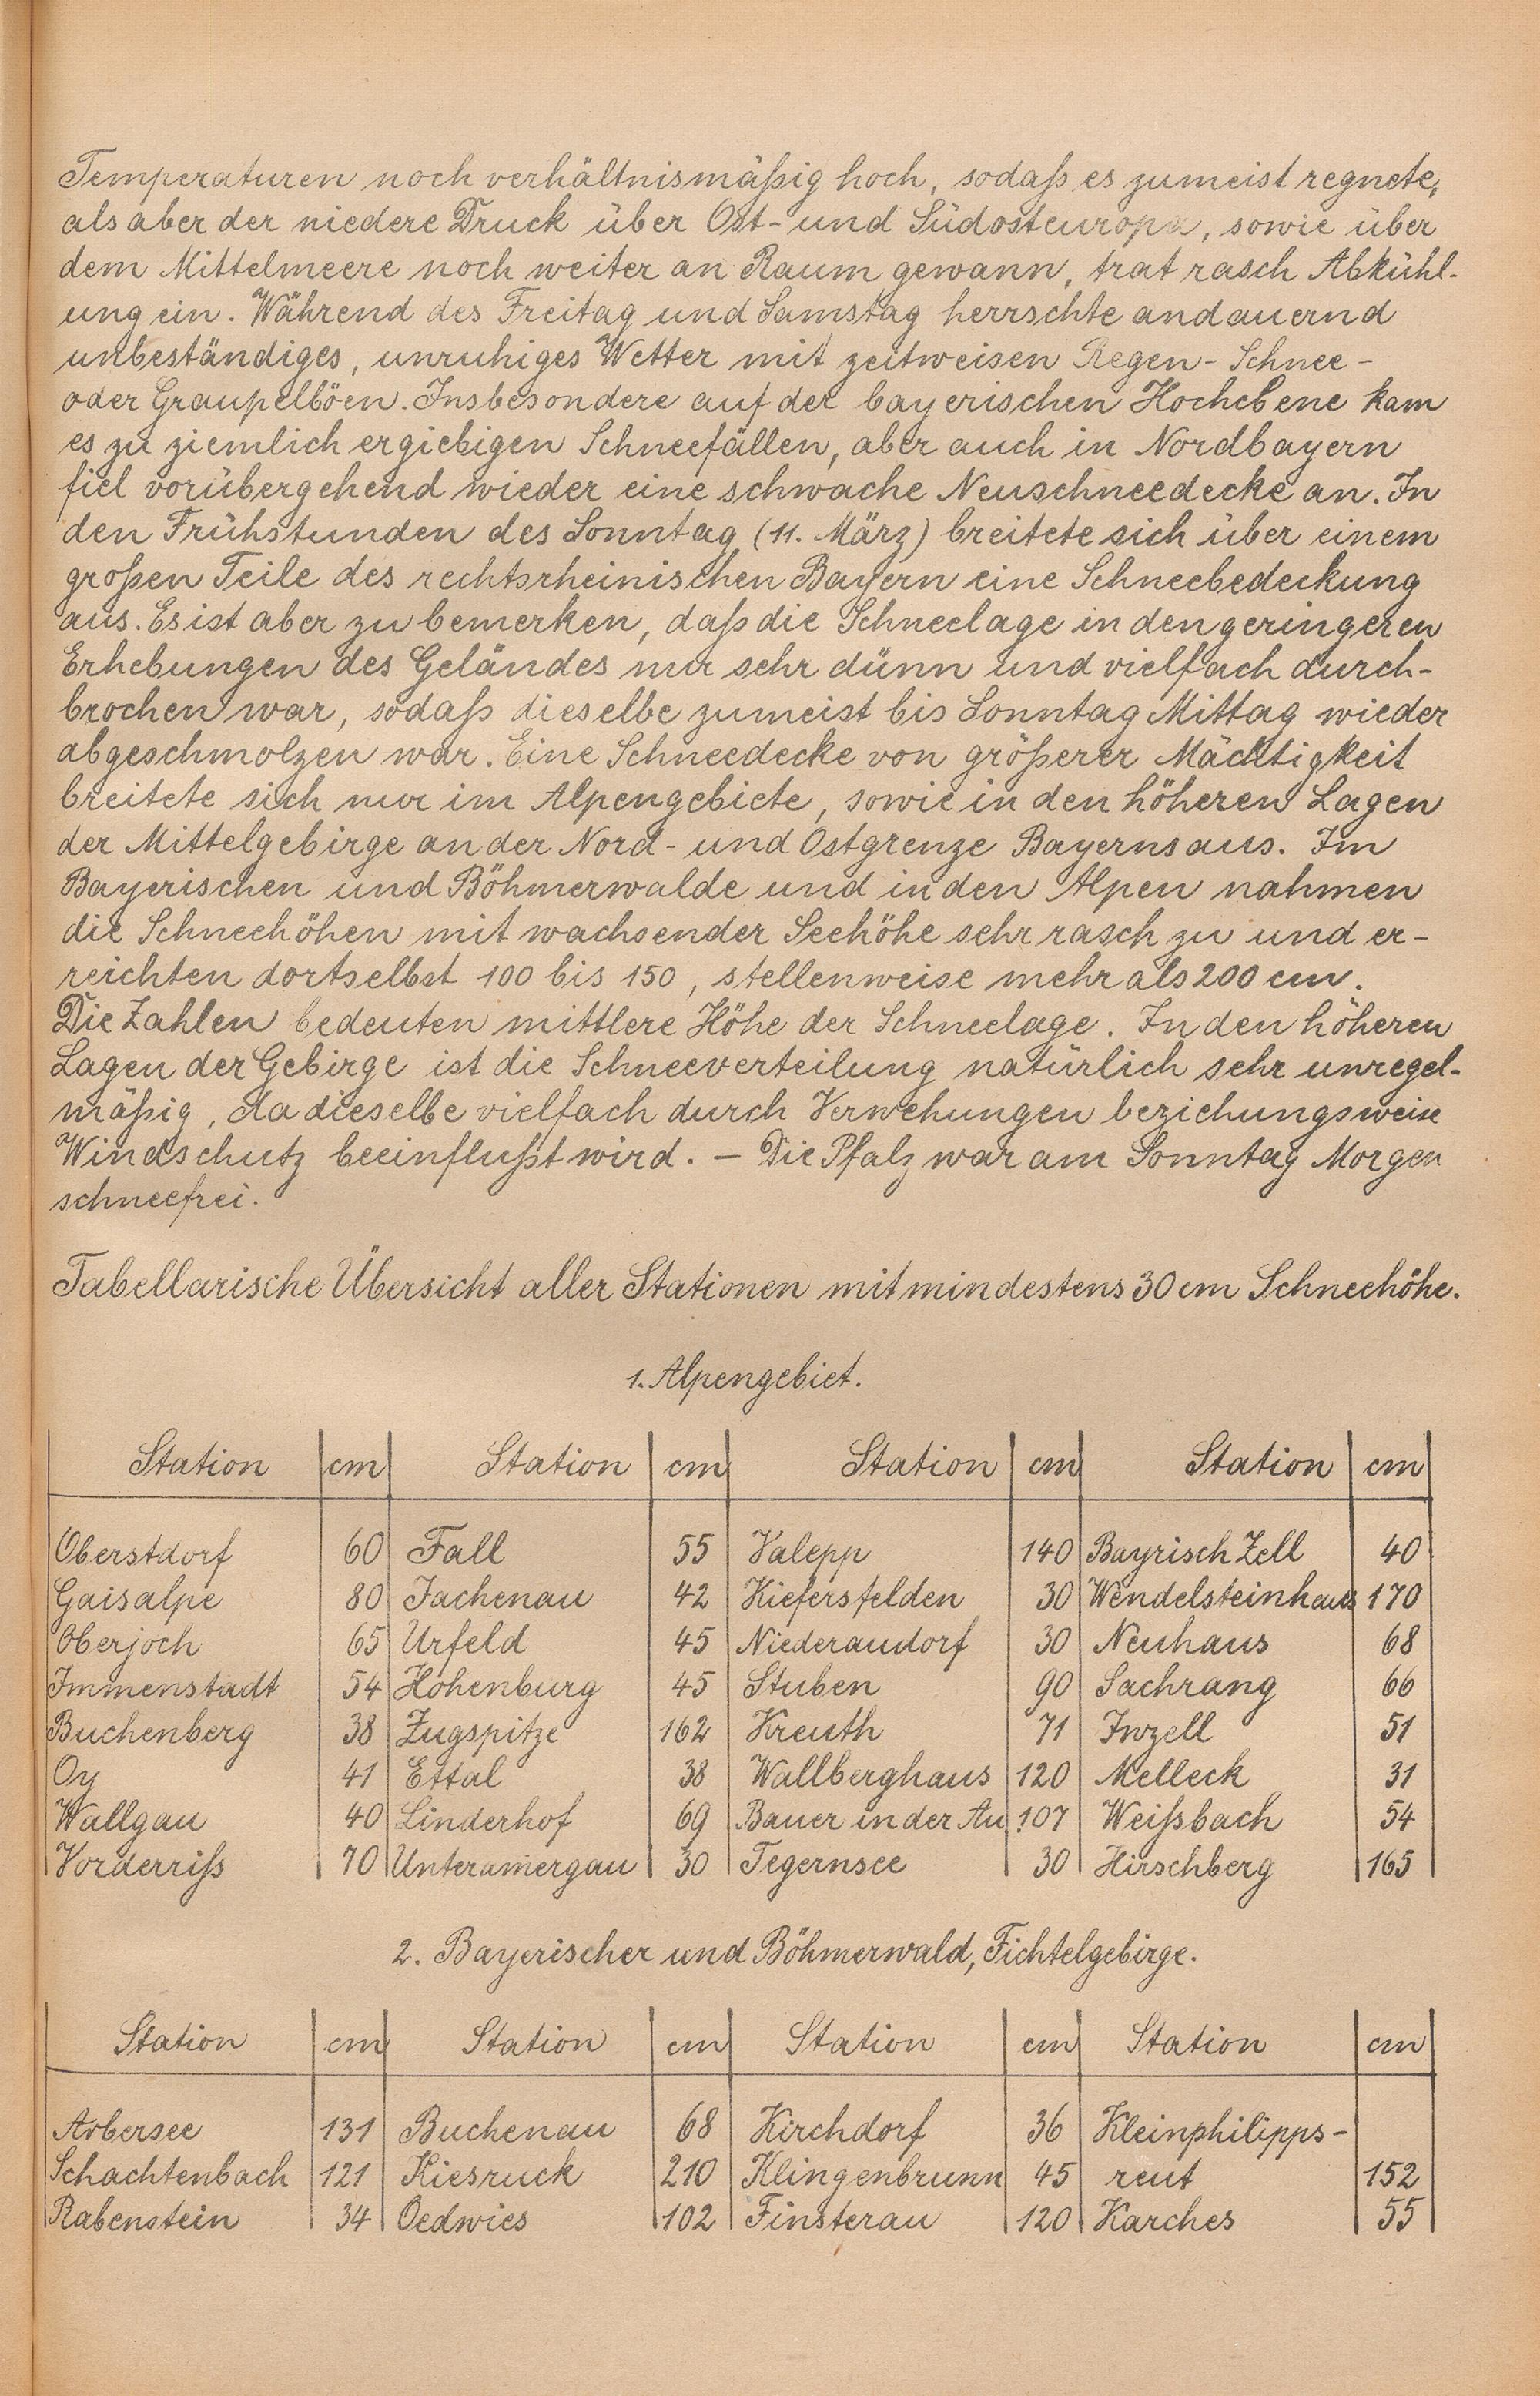 Temperaturen noch verhältnismäßig hoch, sodaß es zumeist regnete,
als aber der niedere Druck über Ost- und Südosteuropa, sowie über
dem Mittelmeere noch weiter an Raum gewann, trat rasch Abkühl-
ung ein. Während des Freitag und Samstag herrschte andauernd
unbeständiges, unruhiges Wetter mit zeitweisen Regen- Schnee-
oder Graupelböen. Insbesondere auf der bayerischen Hochebene kam
es zu ziemlich ergiebigen Schneefällen, aber auch in Nordbayern
fiel vorübergehend wieder eine schwache Neuschneedecke an. In
den Frühstunden des Sonntag (11. März) breitete sich über einem
großen Teile des rechtsrheinischen Bayern eine Schneebedeckung
aus. Es ist aber zu bemerken, daß die Schneelage in den geringeren
Erhebungen des Geländes nur sehr dünn und vielfach durch-
brochen war, sodaß dieselbe zumeist bis Sonntag Mittag wieder
abgeschmolzen war. Eine Schneedecke von größerer Mächtigkeit
breitete sich nur im Alpengebiete, sowie in den höheren Lagen
der Mittelgebirge an der Nord- und Ostgrenze Bayerns aus. Im
Bayerischen und Böhmerwalde und in den Alpen nahmen
die Schneehöhen mit wachsender Seehöhe sehr rasch zu und er-
reichten dortselbst 100 bis 150, stellenweise mehr als 200 cm.
Die Zahlen bedeuten mittlere Höhe der Schneelage. In den höheren
Lagen der Gebirge ist die Schneeverteilung natürlich sehr unregel-
mäßig, da dieselbe vielfach durch Verwehungen beziehungsweise
Windschutz beeinflußt wird. - Die Pfalz war am Sonntag Morgen
schneefrei.
Tabellarische Übersicht aller Stationen mit mindestens 30 cm Schneehöhe.
1. Alpengebiet.
Station cm Station cm Station cm Station cm
Oberstdorf 60 Fall 55 Valepp 140 Bayrisch Zell 40
Gaisalpe 80 Jachenau 42 Kiefersfelden 30 Wendelsteinhaus 170
Oberjoch 65 Urfeld 45 Niederaudorf 30 Neuhaus 68
Immenstadt 54 Hohenburg 45 Stuben 90 Sachrang 66
Buchenberg 38 Zugspitze 162 Kreuth 71 Inzell 51
Oy 41 Ettal 38 Wallberghaus 120 Melleck 31
Wallgau 40 Linderhof 69 Bauer in der Au 107 Weißbach 54
Vorderriß 70 Unteramergau 30 Tegernsee 30 Hirschberg 165
2. Bayerischer und Böhmerwald, Fichtelgebirge.
Station cm Station cm Station cm Station cm
Arbersee 131 Buchenau 68 Kirchdorf 36 Kleinphilipps-
Schachtenbach 121 Kiesruck 210 Klingenbrunn 45 reut 152
Rabenstein 34 Oedwies 102 Finsterau 120 Karches 55